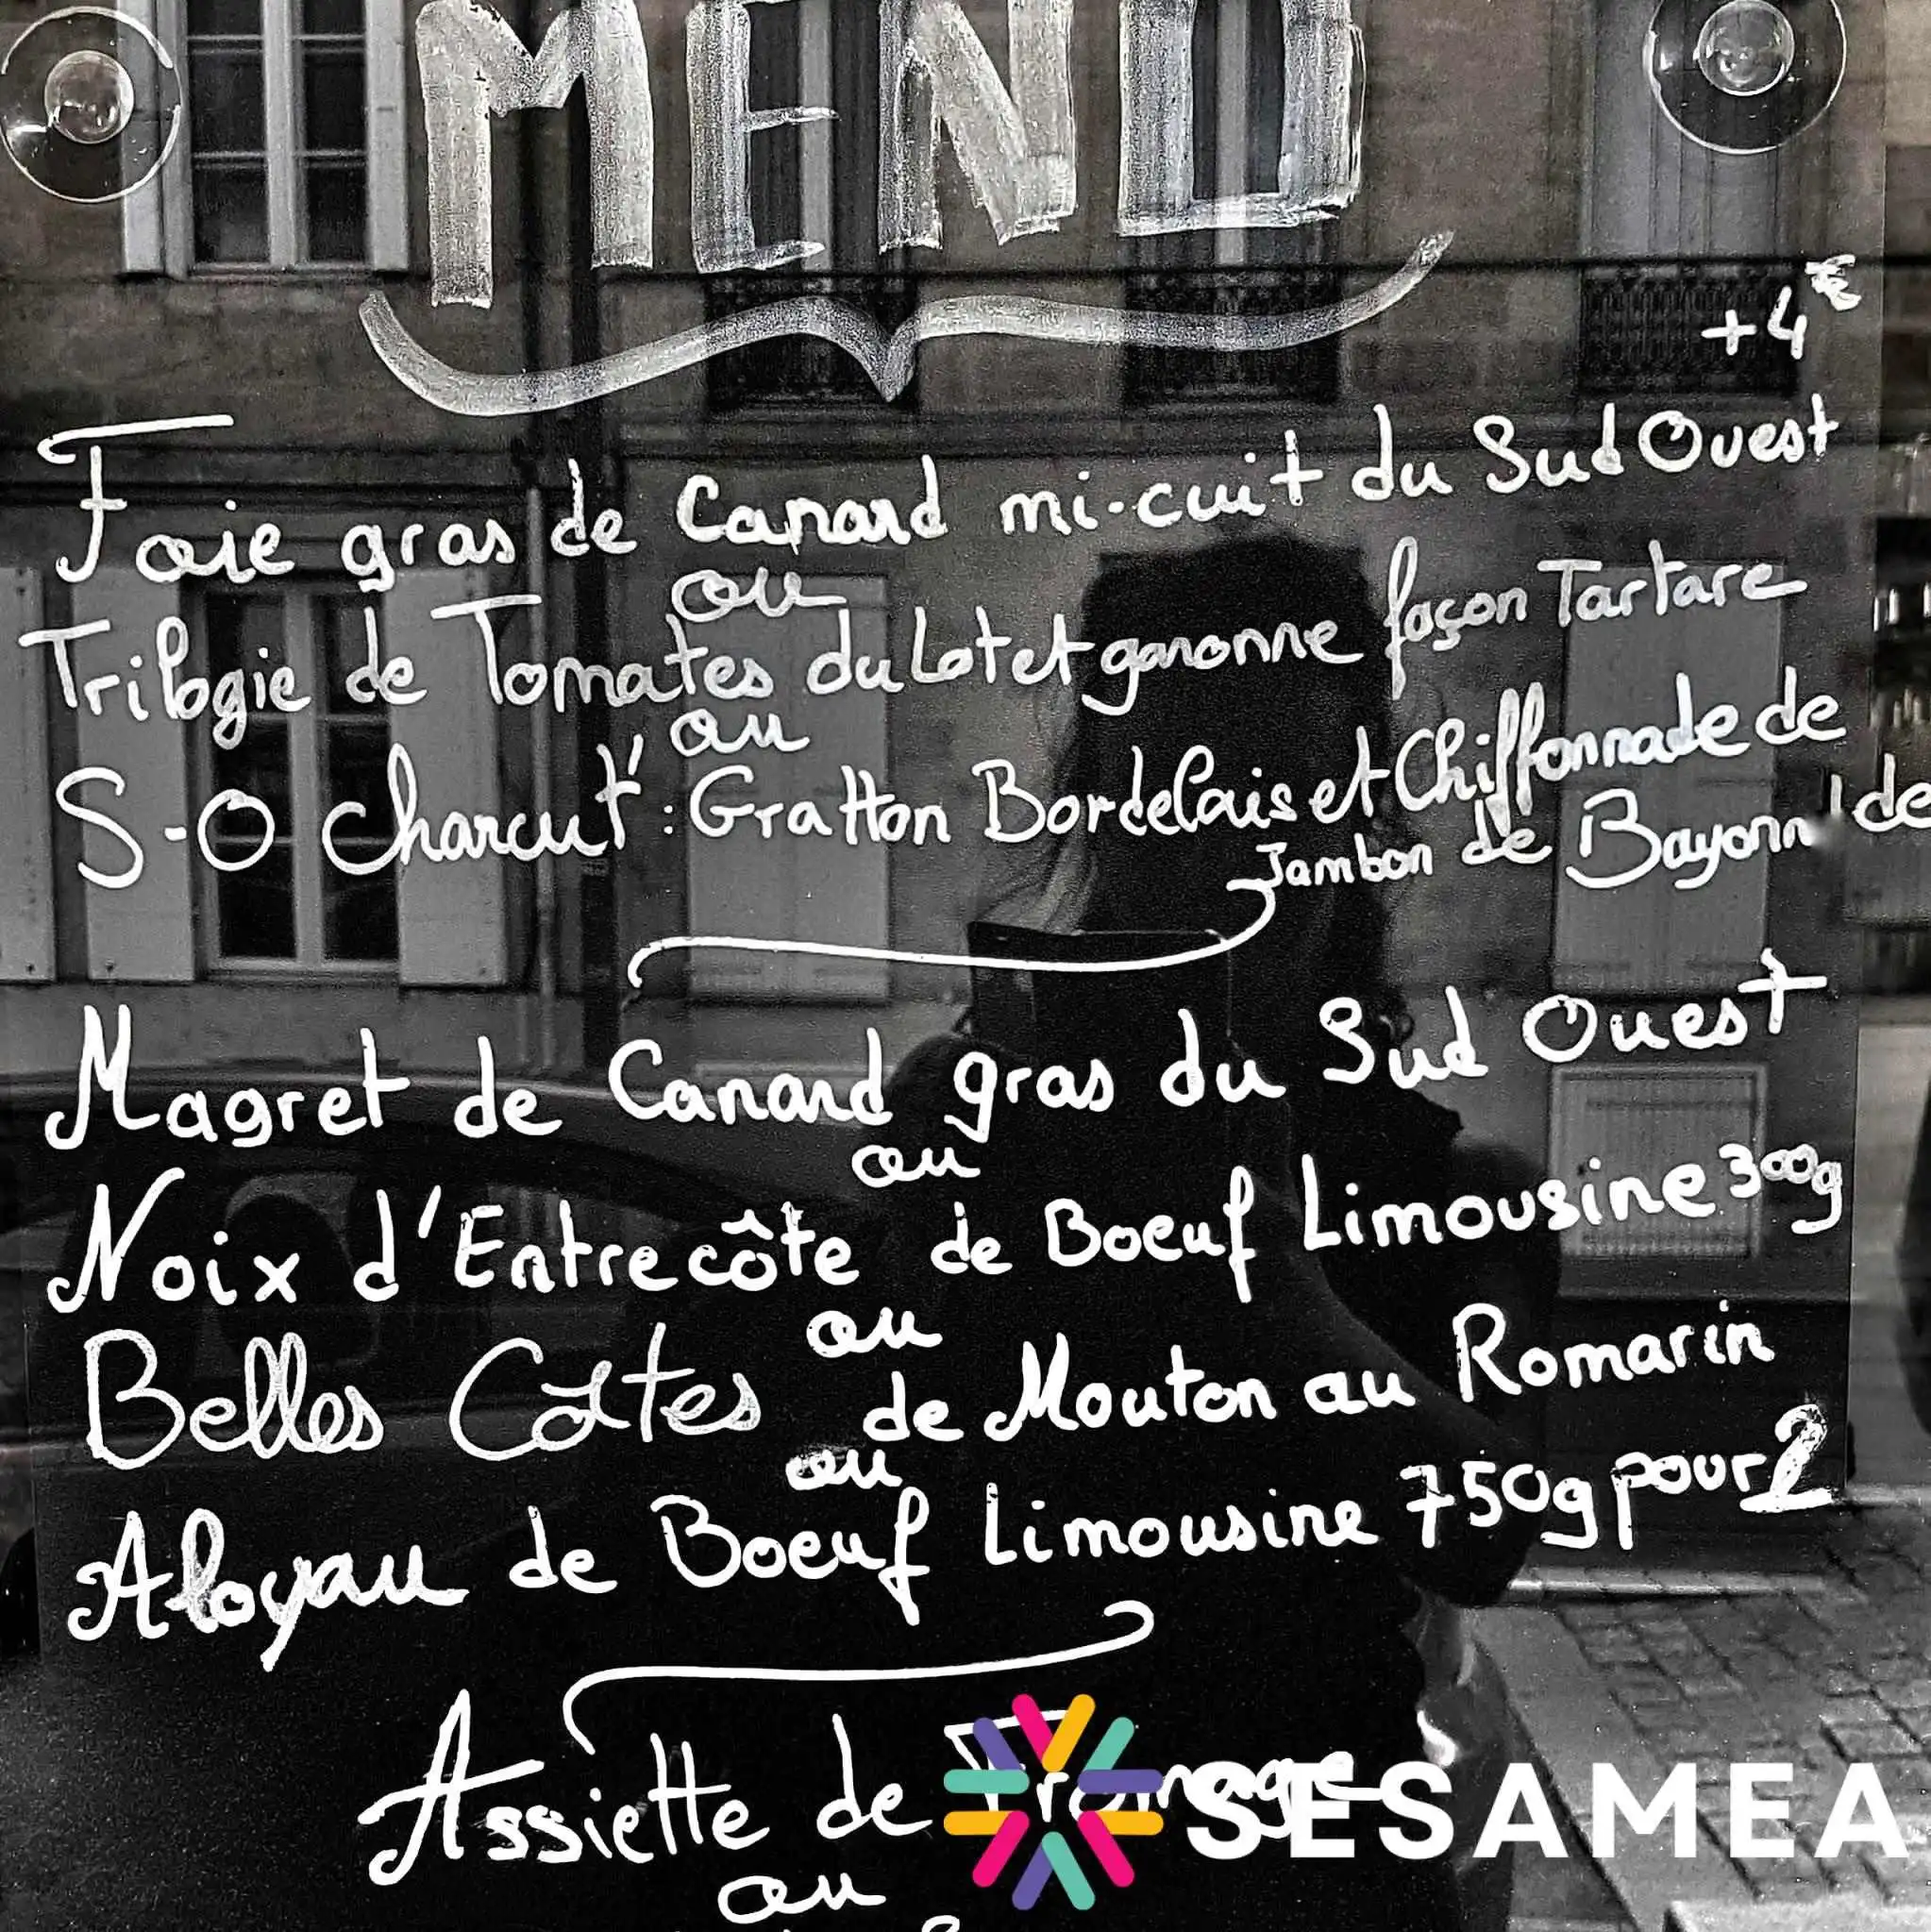 MENU
+4€
Foie gras de Canard mi-cuit du Sud Ouest
ou
Trilogie de Tomates du Lot et garonne façon Tartare
ou
S-O Charcut' : Gratton Bordelais et Chiffonnade de
Jambon de Bayonn
de
Magret de Canard gras du Sud Ouest
ou
Noix d'Entrecôte de Boeuf Limousine 300g
ou
Belles Côtes de Mouton au Romarin
ou
Aloyau de Boeuf Limousine 750g pour 2
Assiette de Fromage
SESAMEA
ou